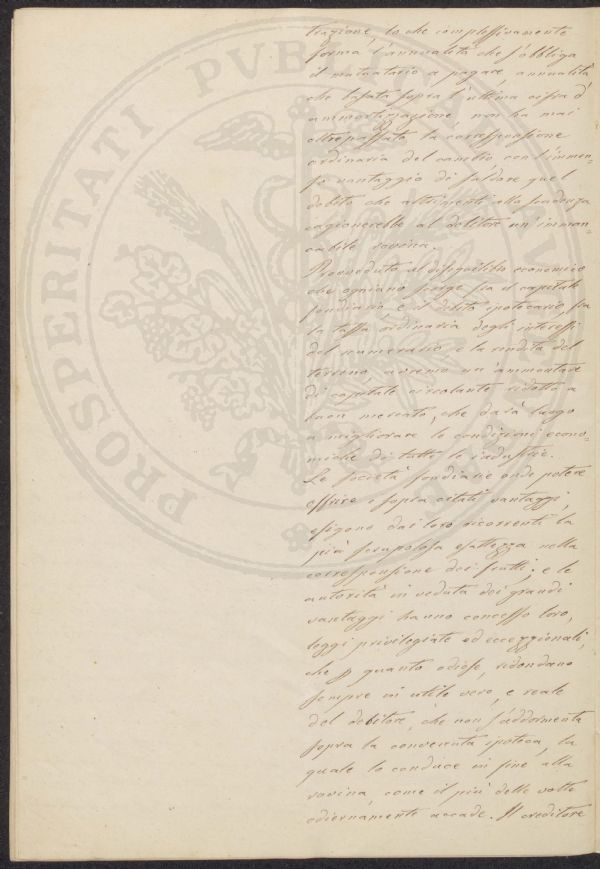 trazione, lo che complessivamente
forma l'annualità che s'obbliga
il mutuatario a pagare, annualità
che tassata sopra l'ultima cifra d'
ammortizzazione, non ha mai
oltrepassato la corresponsione
ordinaria del cambio con l'immen-
so vantaggio di saldare quel
debito che altrimenti alla scadenza
cagionerebbe al debitore un'imman-
cabile rovina.
Provveduto al disequilibrio economico
che ogniano sorge fra il capitale
fondiario, e il debito ipotecario, fra
la tassa ordinaria degli interessi
del numerario, e la rendita del
terreno, avremo un'ammontare
di capitale circolante ridotto a
buon mercato, che darà luogo
a migliorare le condizioni econo-
miche di tutte le industrie.
Le Società fondiarie onde potere
offrire i sopra citati vantaggi,
esigono dai loro ricorrenti la
più scrupolosa esattezza nella
corresponsione dei frutti; e le
autorità in veduta dei grandi
vantaggi hanno concesso loro,
leggi privilegiate ed eccezzionali,
che p quanto odiose, ridondano
sempre in utile vero, e reale
del debitore, che non s'addormenta
sopra la convenuta ipoteca, la
quale lo conduce in fine alla
rovina, come il più delle volte
odiernamente accade. Il creditore
PROSPERITATI PVBLICAE AV